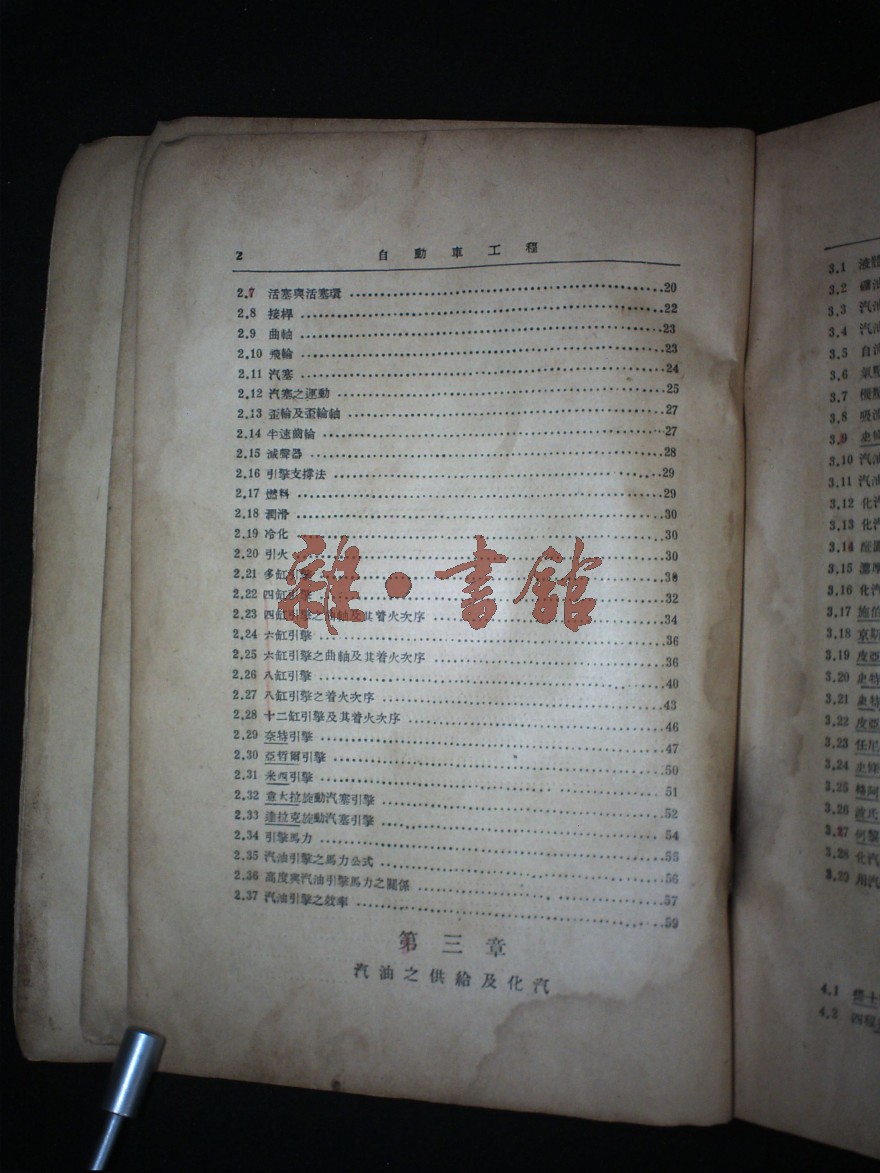 2 自動車工程
2.7 活塞與活塞環 20
2.8 接桿 22
2.9 曲軸 23
2.10 飛輪 23
2.11 汽塞 24
2.12 汽塞之運動 25
2.13 歪輪及歪輪軸 27
2.14 半速齒輪 27
2.15 減聲器 28
2.16 引擎支撐法 29
2.17 燃料 29
2.18 潤滑 30
2.19 冷化 30
2.20 引火 30
2.21 多缸引擎 30
2.22 四缸引擎 32
2.23 四缸引擎之曲軸及其着火次序 34
2.24 六缸引擎 36
2.25 六缸引擎之曲軸及其着火次序 36
2.26 八缸引擎 40
2.27 八缸引擎之着火次序 43
2.28 十二缸引擎及其着火次序 46
2.29 奈特引擎 47
2.30 亞哲爾引擎 50
2.31 米西引擎 51
2.32 意大拉旋動汽塞引擎 52
2.33 達拉克旋動汽塞引擎 54
2.34 引擎馬力 55
2.35 汽油引擎之馬力公式 56
2.36 高度與汽油引擎馬力之關係 57
2.37 汽油引擎之效率 59
第三章
汽油之供給及化汽
雜·書館
3.1 液體
3.2 礦油
3.3 汽油
3.4 汽油
3.5 自流
3.6 氣壓
3.7 機
3.8 吸
3.9 史
3.10 汽油
3.11 汽油
3.12 化汽
3.13 化汽
3.14 配
3.15 濃
3.16 化汽
3.17 施伯
3.18 京斯
3.19 皮亞
3.20 史特
3.21 史特
3.22 皮亞
3.23 任尼
3.24 史
3.25
3.26 波氏
3.27 例
3.28 化汽
3.29 用汽
4.1
4.2 四程